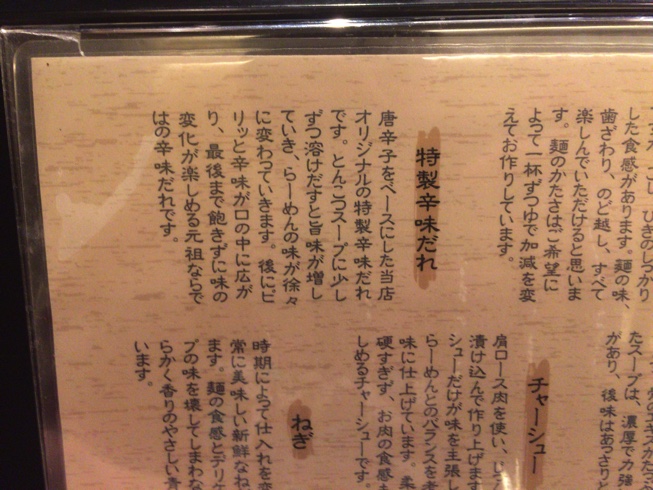 した食感があります。麺の味、
歯ざわり、のど越し、すべて
楽しんでいただけると思いま
す。麺のかたさはご希望に
よって一杯ずつゆで加減を変
えてお作りしています。
特製辛味だれ
唐辛子をベースにした当店
オリジナルの特製辛味だれ
です。とんこつスープに少し
ずつ溶けだすと旨味が増し
ていき、らーめんの味が徐々
に変わっていきます。後にピ
リッと辛味が口の中に広が
り、最後まで飽きずに味の
変化が楽しめる元祖ならで
はの辛味だれです。
たスープは、濃厚で力強
があり、後味はあっさりと
チャーシュー
肩ロース肉を使い、じっ
漬け込んで作り上げます
シューだけが味を主張し
らーめんとのバランスを考
味に仕上げています。柔
硬すぎず、お肉の食感も
しめるチャーシューです。
ねぎ
時期によって仕入れを変
常に美味しい新鮮なね
ます。麺の食感とデリケ
プの味を壊してしまわな
らかく香りのやさしい青
います。